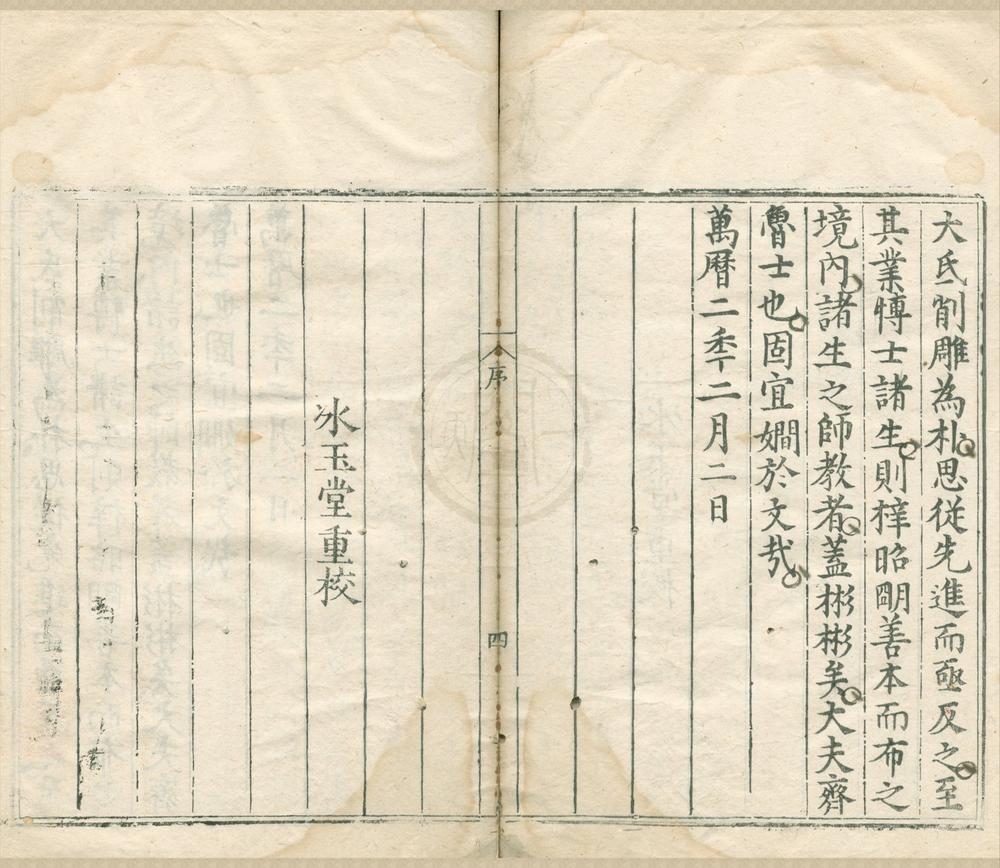 大氐斲雕為朴思從先進而亟反之至
其業博士諸生則梓昭明善本而布之
境內諸生之師教者蓋彬彬矣大夫齊
魯士也固宜嫺於文哉
萬曆二秊二月二日
序
四
冰玉堂重校